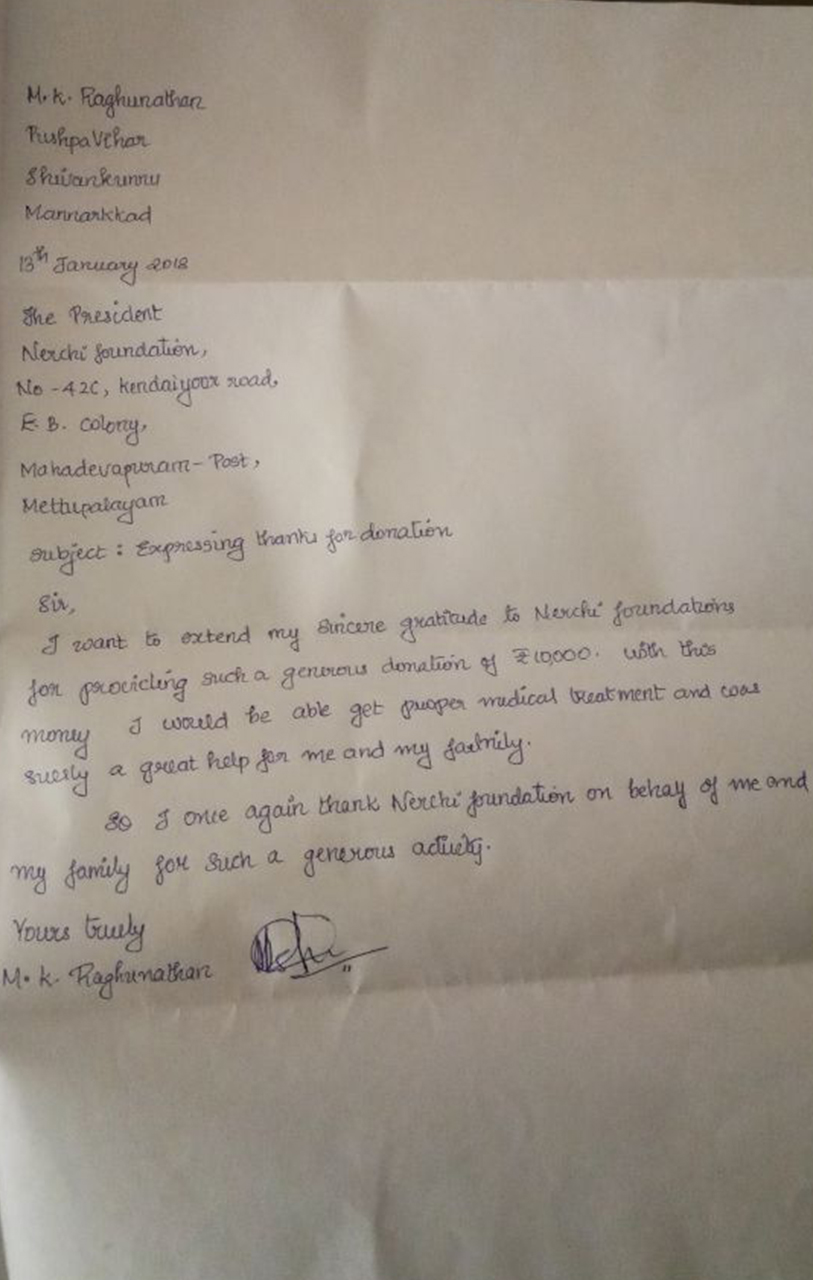 M. K. Raghunathan
Pushpa Vihar
Shivankunnu
Mannarkkad
13th January 2018
The President
Nerchi foundation,
No - 42C, kendaiyoor road,
E. B. Colony,
Mahadevapuram - Post,
Mettupalayam
Subject : Expressing thanks for donation
Sir,
I want to extend my sincere gratitude to Nerchi foundations
for providing such a generous donation of ₹10,000. With this
money I would be able get proper medical treatment and was
suerly a great help for me and my family.
So I once again thank Nerchi foundation on behay of me and
my family for such a generous activity.
Yours truely
M. K. Raghunathan